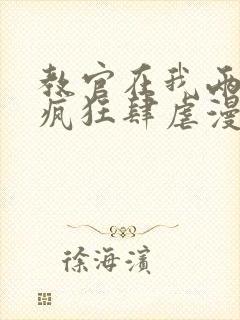 教官在我两
疯狂肆虐漫
徐海滨